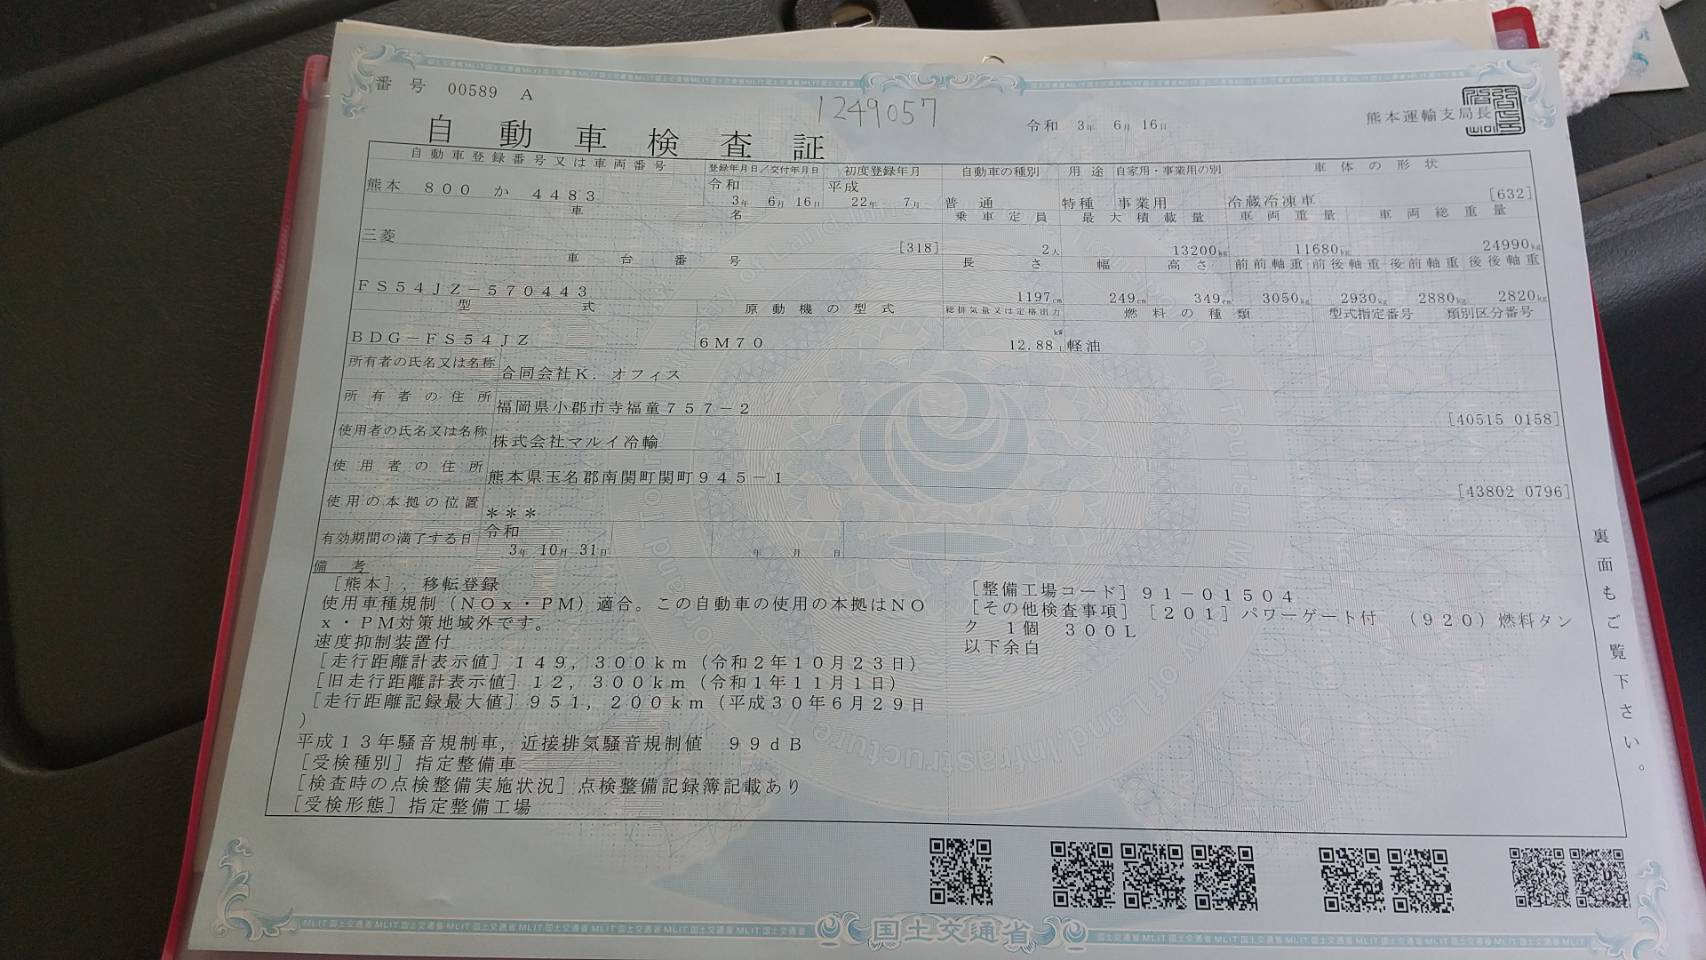 番号 00589 A
1249057
令和 3年 6月 16日
熊本運輸支局長
自動車検査証
自動車登録番号又は車両番号 登録年月日/交付年月日 初度登録年月 自動車の種別 用途 自家用・事業用の別 車体の形状
熊本 800 か 4483 令和 3年 6月 16日 平成 22年 7月 普通 特種 事業用 冷蔵冷凍車 [632]
車名 乗車定員 最大積載量 車両重量 車両総重量
三菱 [318] 2人 13200kg 11680kg 24990kg
車台番号 長さ 幅 高さ 前前軸重 前後軸重 後前軸重 後後軸重
FS54JZ-570443 1197cm 249cm 349cm 3050kg 2930kg 2880kg 2820kg
型式 原動機の型式 総排気量又は定格出力 燃料の種類 型式指定番号 類別区分番号
BDG-FS54JZ 6M70 12.88 kW l 軽油
所有者の氏名又は名称 合同会社K.オフィス
所有者の住所 福岡県小郡市寺福童757-2 [40515 0158]
使用者の氏名又は名称 株式会社マルイ冷輸
使用者の住所 熊本県玉名郡南関町関町945-1 [43802 0796]
使用の本拠の位置 ***
有効期間の満了する日 令和 3年 10月 31日 年 月 日
備考
[熊本],移転登録
使用車種規制(NOx・PM)適合。この自動車の使用の本拠はNO
x・PM対策地域外です。
速度抑制装置付
[走行距離計表示値]149,300km(令和2年10月23日)
[旧走行距離計表示値]12,300km(令和1年11月1日)
[走行距離記録最大値]951,200km(平成30年6月29日
)
平成13年騒音規制車,近接排気騒音規制値 99dB
[受検種別]指定整備車
[検査時の点検整備実施状況]点検整備記録簿記載あり
[受検形態]指定整備工場
[整備工場コード]91-01504
[その他検査事項][201]パワーゲート付 (920)燃料タン
ク 1個 300L
以下余白
裏面もご覧下さい。
国土交通省